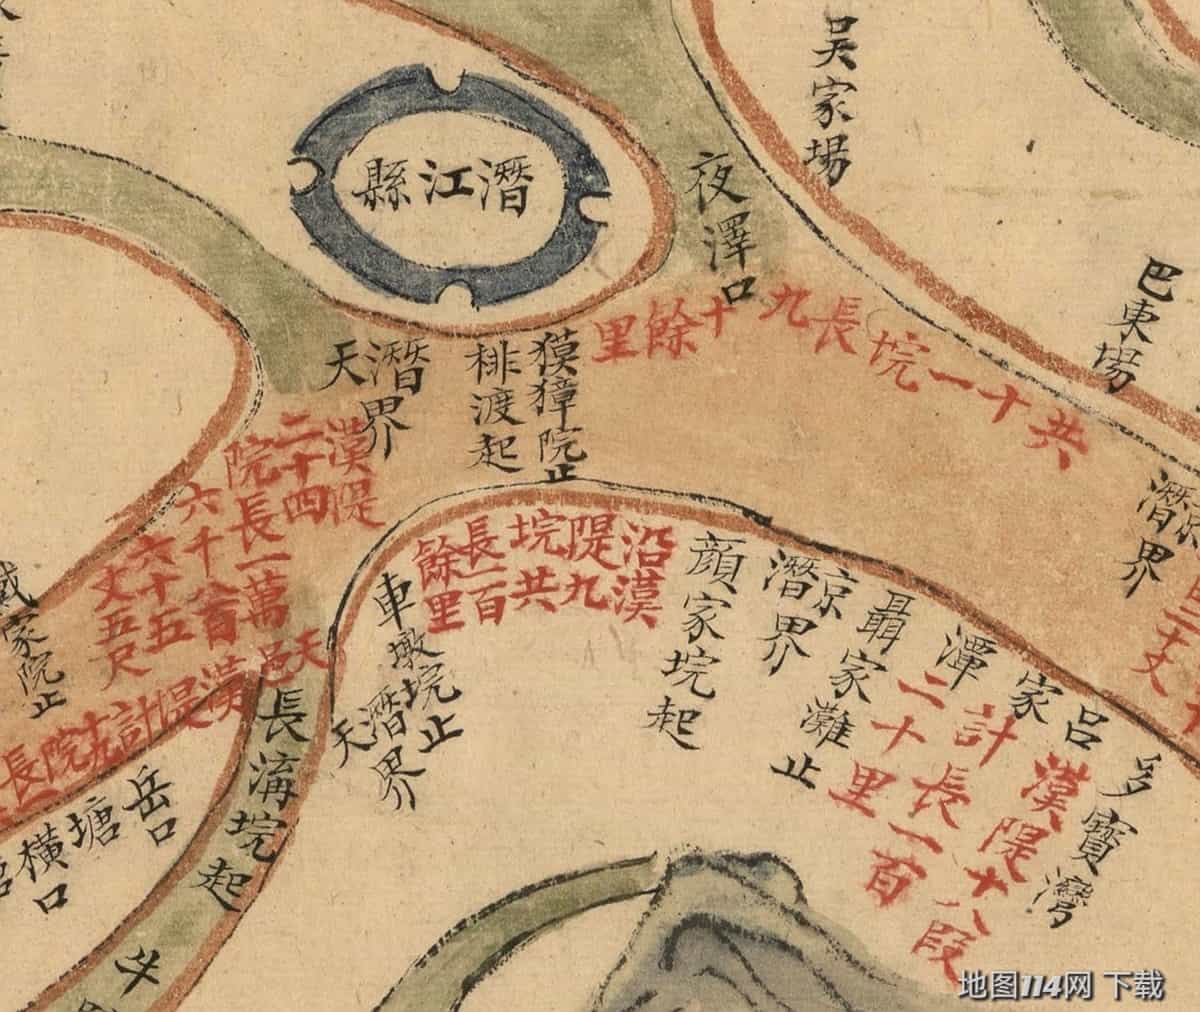 吴家場
潛江縣
夜澤口
巴東場
共十一垸長九十餘里
獏獐院止
桏渡起
潛界
天
漢隄
二十四
院長一萬
六千八百
六十五
丈五尺
沿漢
隄九
垸共
長一百
餘里
車墩垸止
天潛界
顏家垸起
潛界
聶家灘止
潭
家
呂
多寶灣
漢隄十八段
計長一百
二十里
潛界
家院止
天邑漢隄計十九院長
長溝垸起
岳口
塘
橫口
地图114网 下载